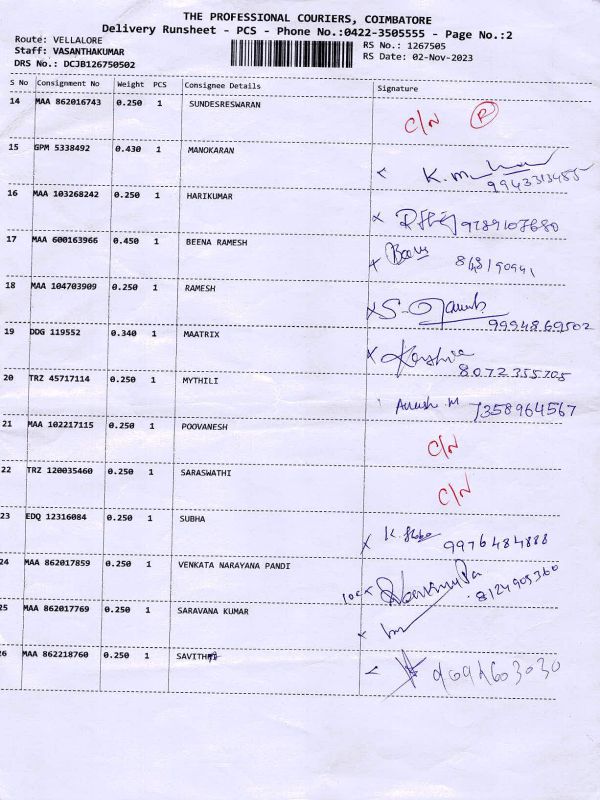 THE PROFESSIONAL COURIERS, COIMBATORE
Delivery Runsheet - PCS - Phone No.:0422-3505555 - Page No.:2
Route: VELLALORE
RS No.: 1267505
Staff: VASANTHAKUMAR
RS Date: 02-Nov-2023
DRS No.: DCJB126750502
S No Consignment No Weight PCS Consignee Details Signature
14 MAA 862016743 0.250 1 SUNDESRESWARAN C/N R
15 GPM 5338492 0.430 1 MANOKARAN
16 MAA 103268242 0.250 1 HARIKUMAR 9789107680
17 MAA 600163966 0.450 1 BEENA RAMESH
18 MAA 104703909 0.250 1 RAMESH 9994869502
19 DDG 119552 0.340 1 MAATRIX 8072355705
20 TRZ 45717114 0.250 1 MYTHILI 7358964567
21 MAA 102217115 0.250 1 POOVANESH C/N
22 TRZ 120035460 0.250 1 SARASWATHI C/N
23 EDQ 12316084 0.250 1 SUBHA 9976484888
24 MAA 862017859 0.250 1 VENKATA NARAYANA PANDI 8124905360
25 MAA 862017769 0.250 1 SARAVANA KUMAR
26 MAA 862218760 0.250 1